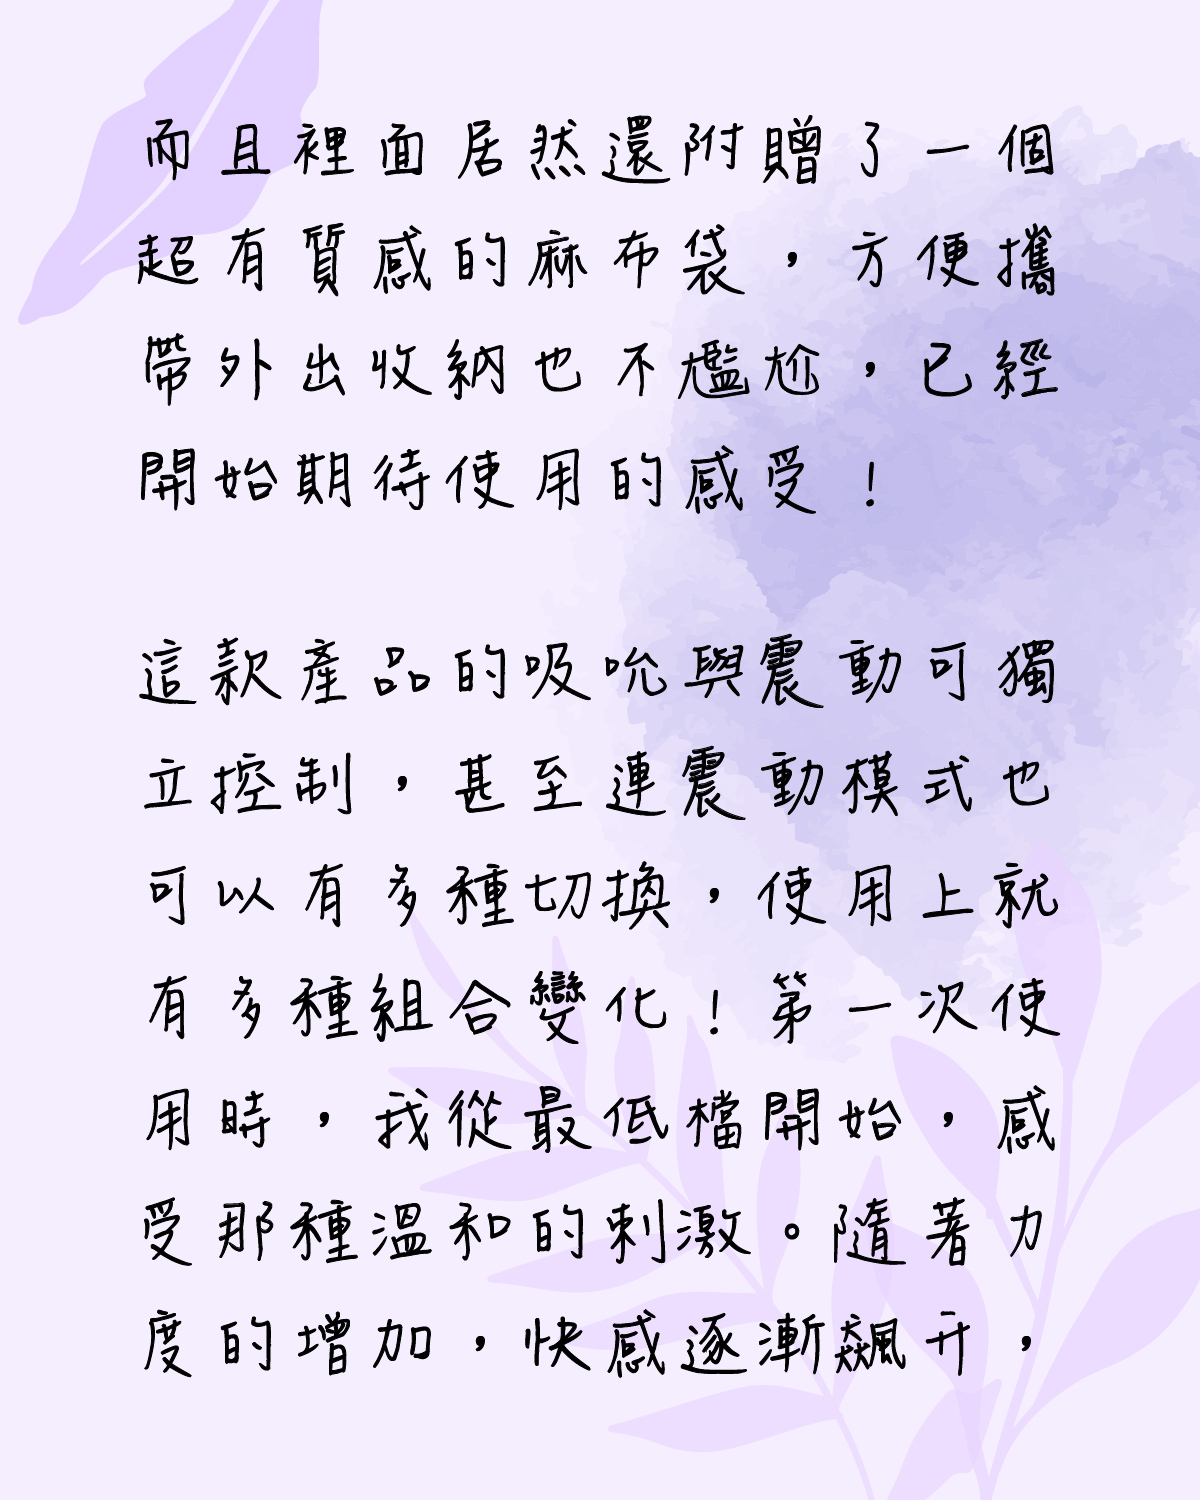 而且裡面居然還附贈了一個
超有質感的麻布袋，方便攜
帶外出收納也不尷尬，已經
開始期待使用的感受！
這款產品的吸吮與震動可獨
立控制，甚至連震動模式也
可以有多種切換，使用上就
有多種組合變化！第一次使
用時，我從最低檔開始，感
受那種溫和的刺激。隨著力
度的增加，快感逐漸飆升，